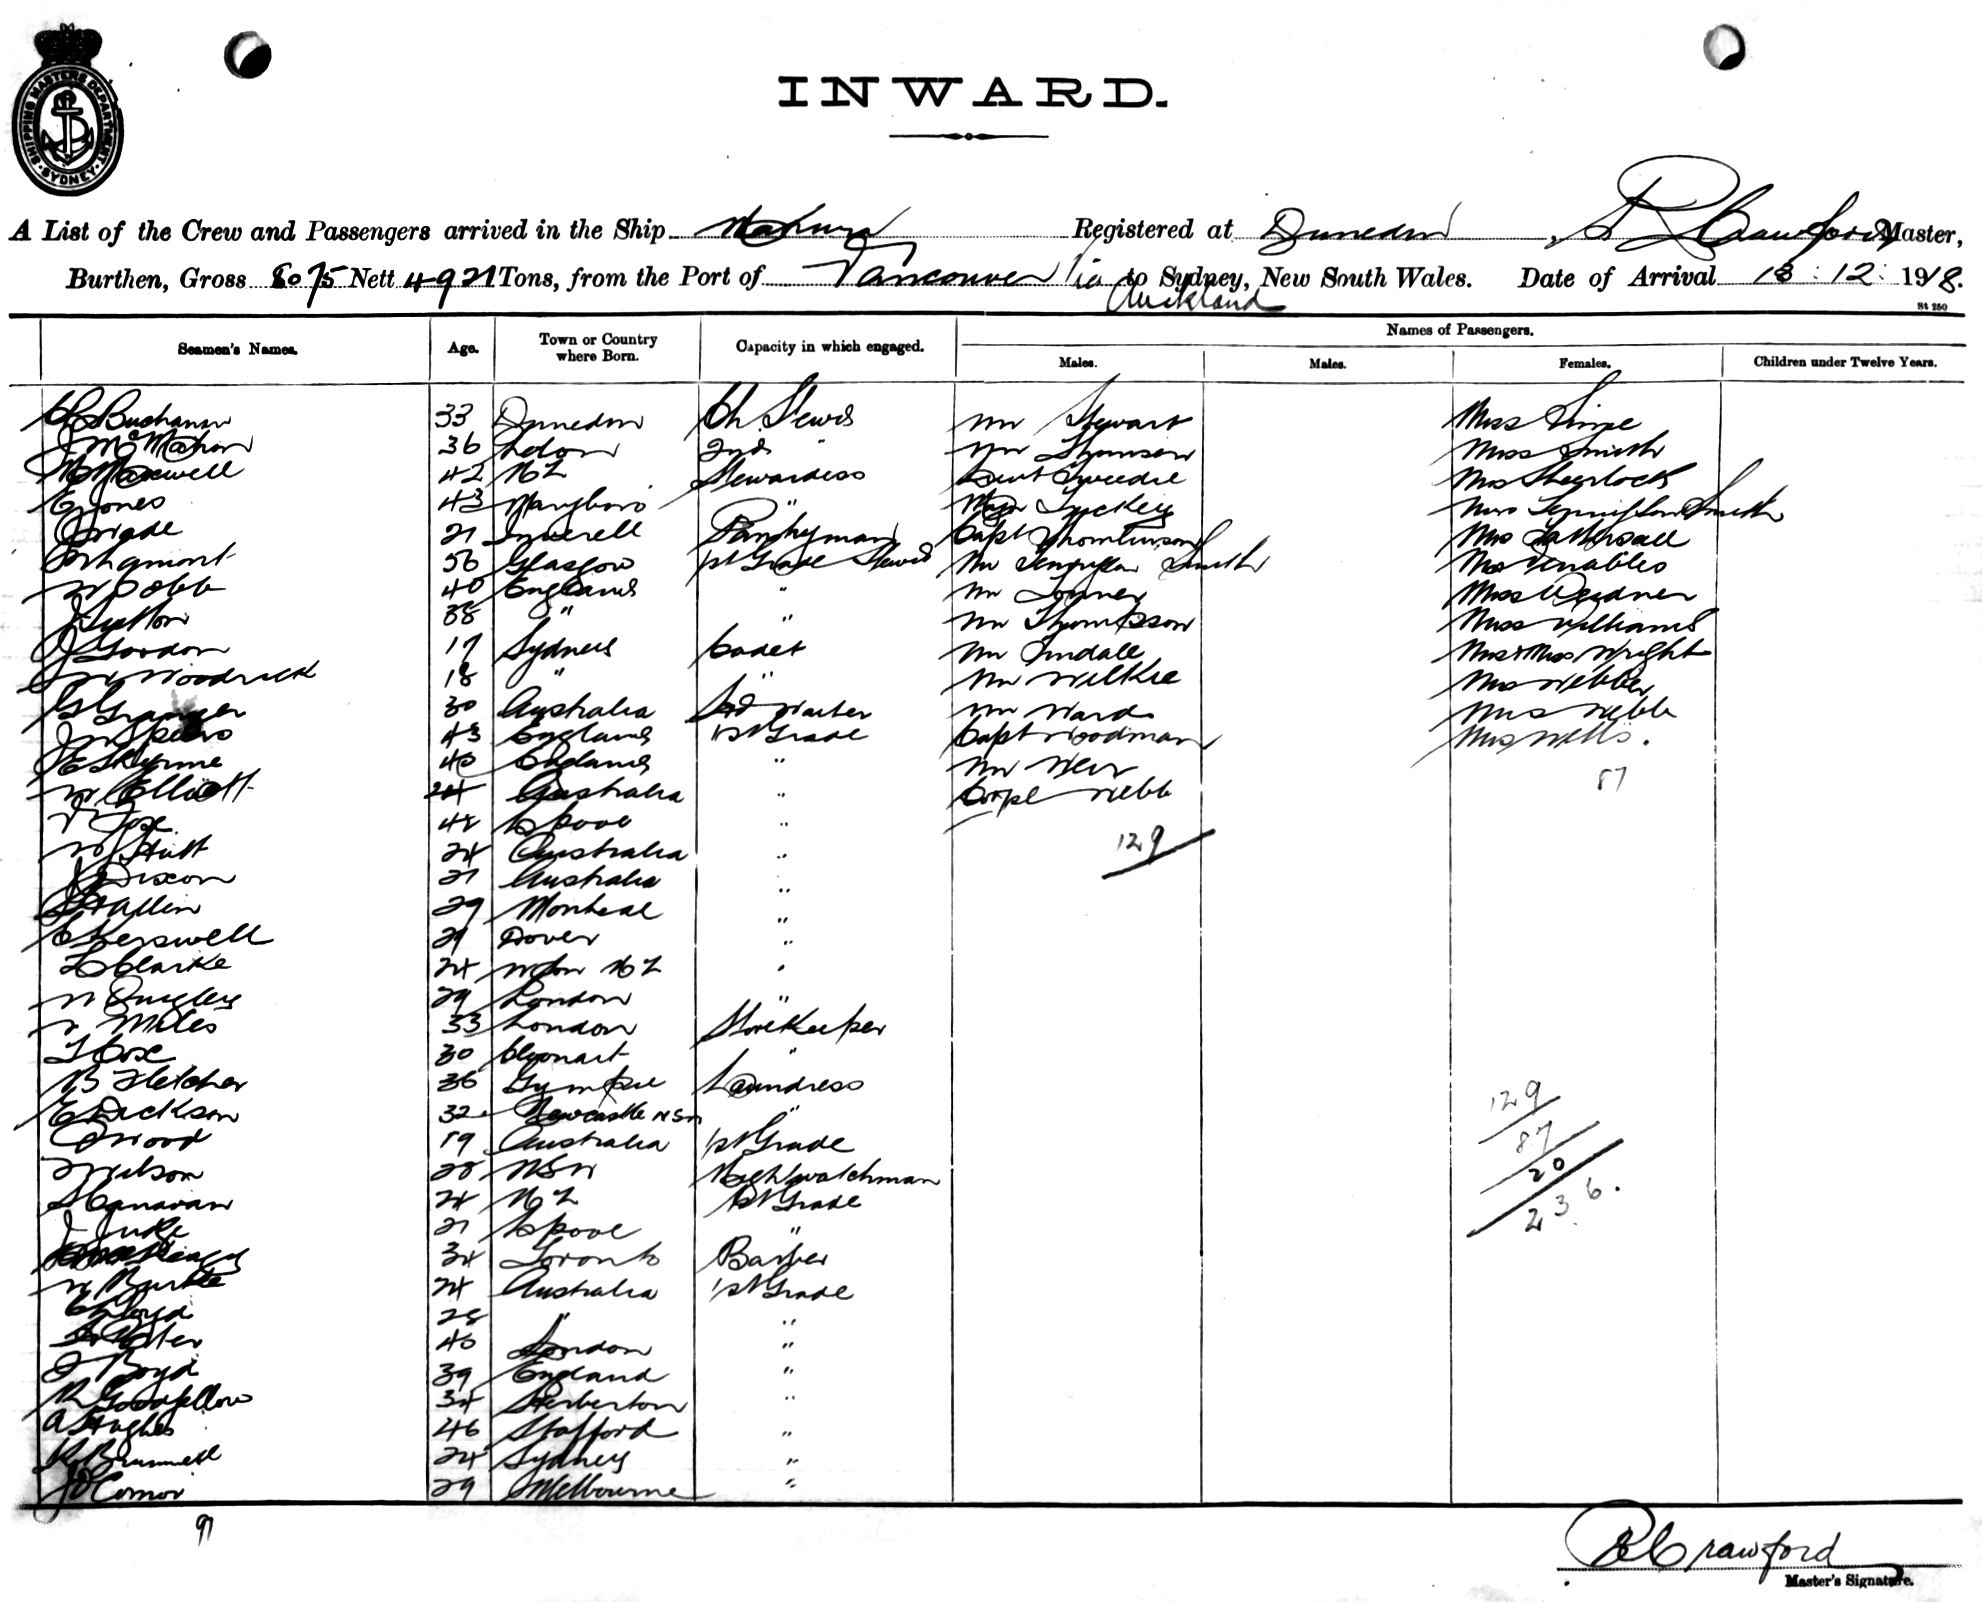 SHIPPING MASTERS DEPARTMENT
SYDNEY
INWARD.
A List of the Crew and Passengers arrived in the Ship Makura Registered at Dunedin, R Crawford Master,
Burthen, Gross 8075 Nett 4921 Tons, from the Port of Vancouver Via Auckland to Sydney, New South Wales. Date of Arrival 13:12:1918.
St 250
Names of Passengers.
Seamen's Names. Age. Town or Country where Born. Capacity in which engaged. Males. Males. Females. Children under Twelve Years.
Buchanan 33 Dunedin Ch. Stewd Mr Stewart Miss
J McMahon 36 Ldon 2nd " Mr Miss Smith
M Maxwell 42 NZ Stewardess Tweedie Mrs Sherlock
E Jones 43 Maryboro " Tuckey Mrs Smith
21 Inverell Pantryman Capt Thomlinson Mrs Tattersall
56 Glasgow 1st Grade Stewd Mr Smith Mrs Venables
W Cobb 40 England " Mr Miss Weidner
J Sutton 38 " " Mr Thompson Miss Williams
J Gordon 17 Sydney Cadet Mr Tindall Mrs & Miss Wright
Woodrick 18 " " Mr Wilkie Mrs Webber
G Granger 30 Australia Waiter Mr Ward Mrs Webb
J W Speirs 43 England 1st Grade Capt Woodman Mrs Wells.
E Skyrme 40 England " Mr Weir
W Elliott 24 Australia " Corpl Webb 87
Fox 48 Lpool "
W Hutt 24 Australia " 129
J Dixon 21 Australia "
Allen 29 Montreal "
C Kerswell 29 Dover "
L Clarke 24 Wton NZ "
W Quigley 29 London "
Miles 33 London Storekeeper
T Cox 30 "
B Fletcher 36 Gympie Laundress
E Dickson 32 Newcastle NSW " 129
Wood 19 Australia 1st Grade 87
Wilson 28 NSW Nightwatchman 20
S Canavan 24 NZ 1st Grade 236.
J Juke 21 Lpool "
34 Toronto Barber
W Burke 24 Australia 1st Grade
C Lloyd 28 " "
40 London "
Boyd 39 England "
R Goodfellow 34 Herberton "
A Hughes 46 Stafford "
R Brunnell 24 Sydney "
J O'Connor 29 Melbourne "
R Crawford
Master's Signature.